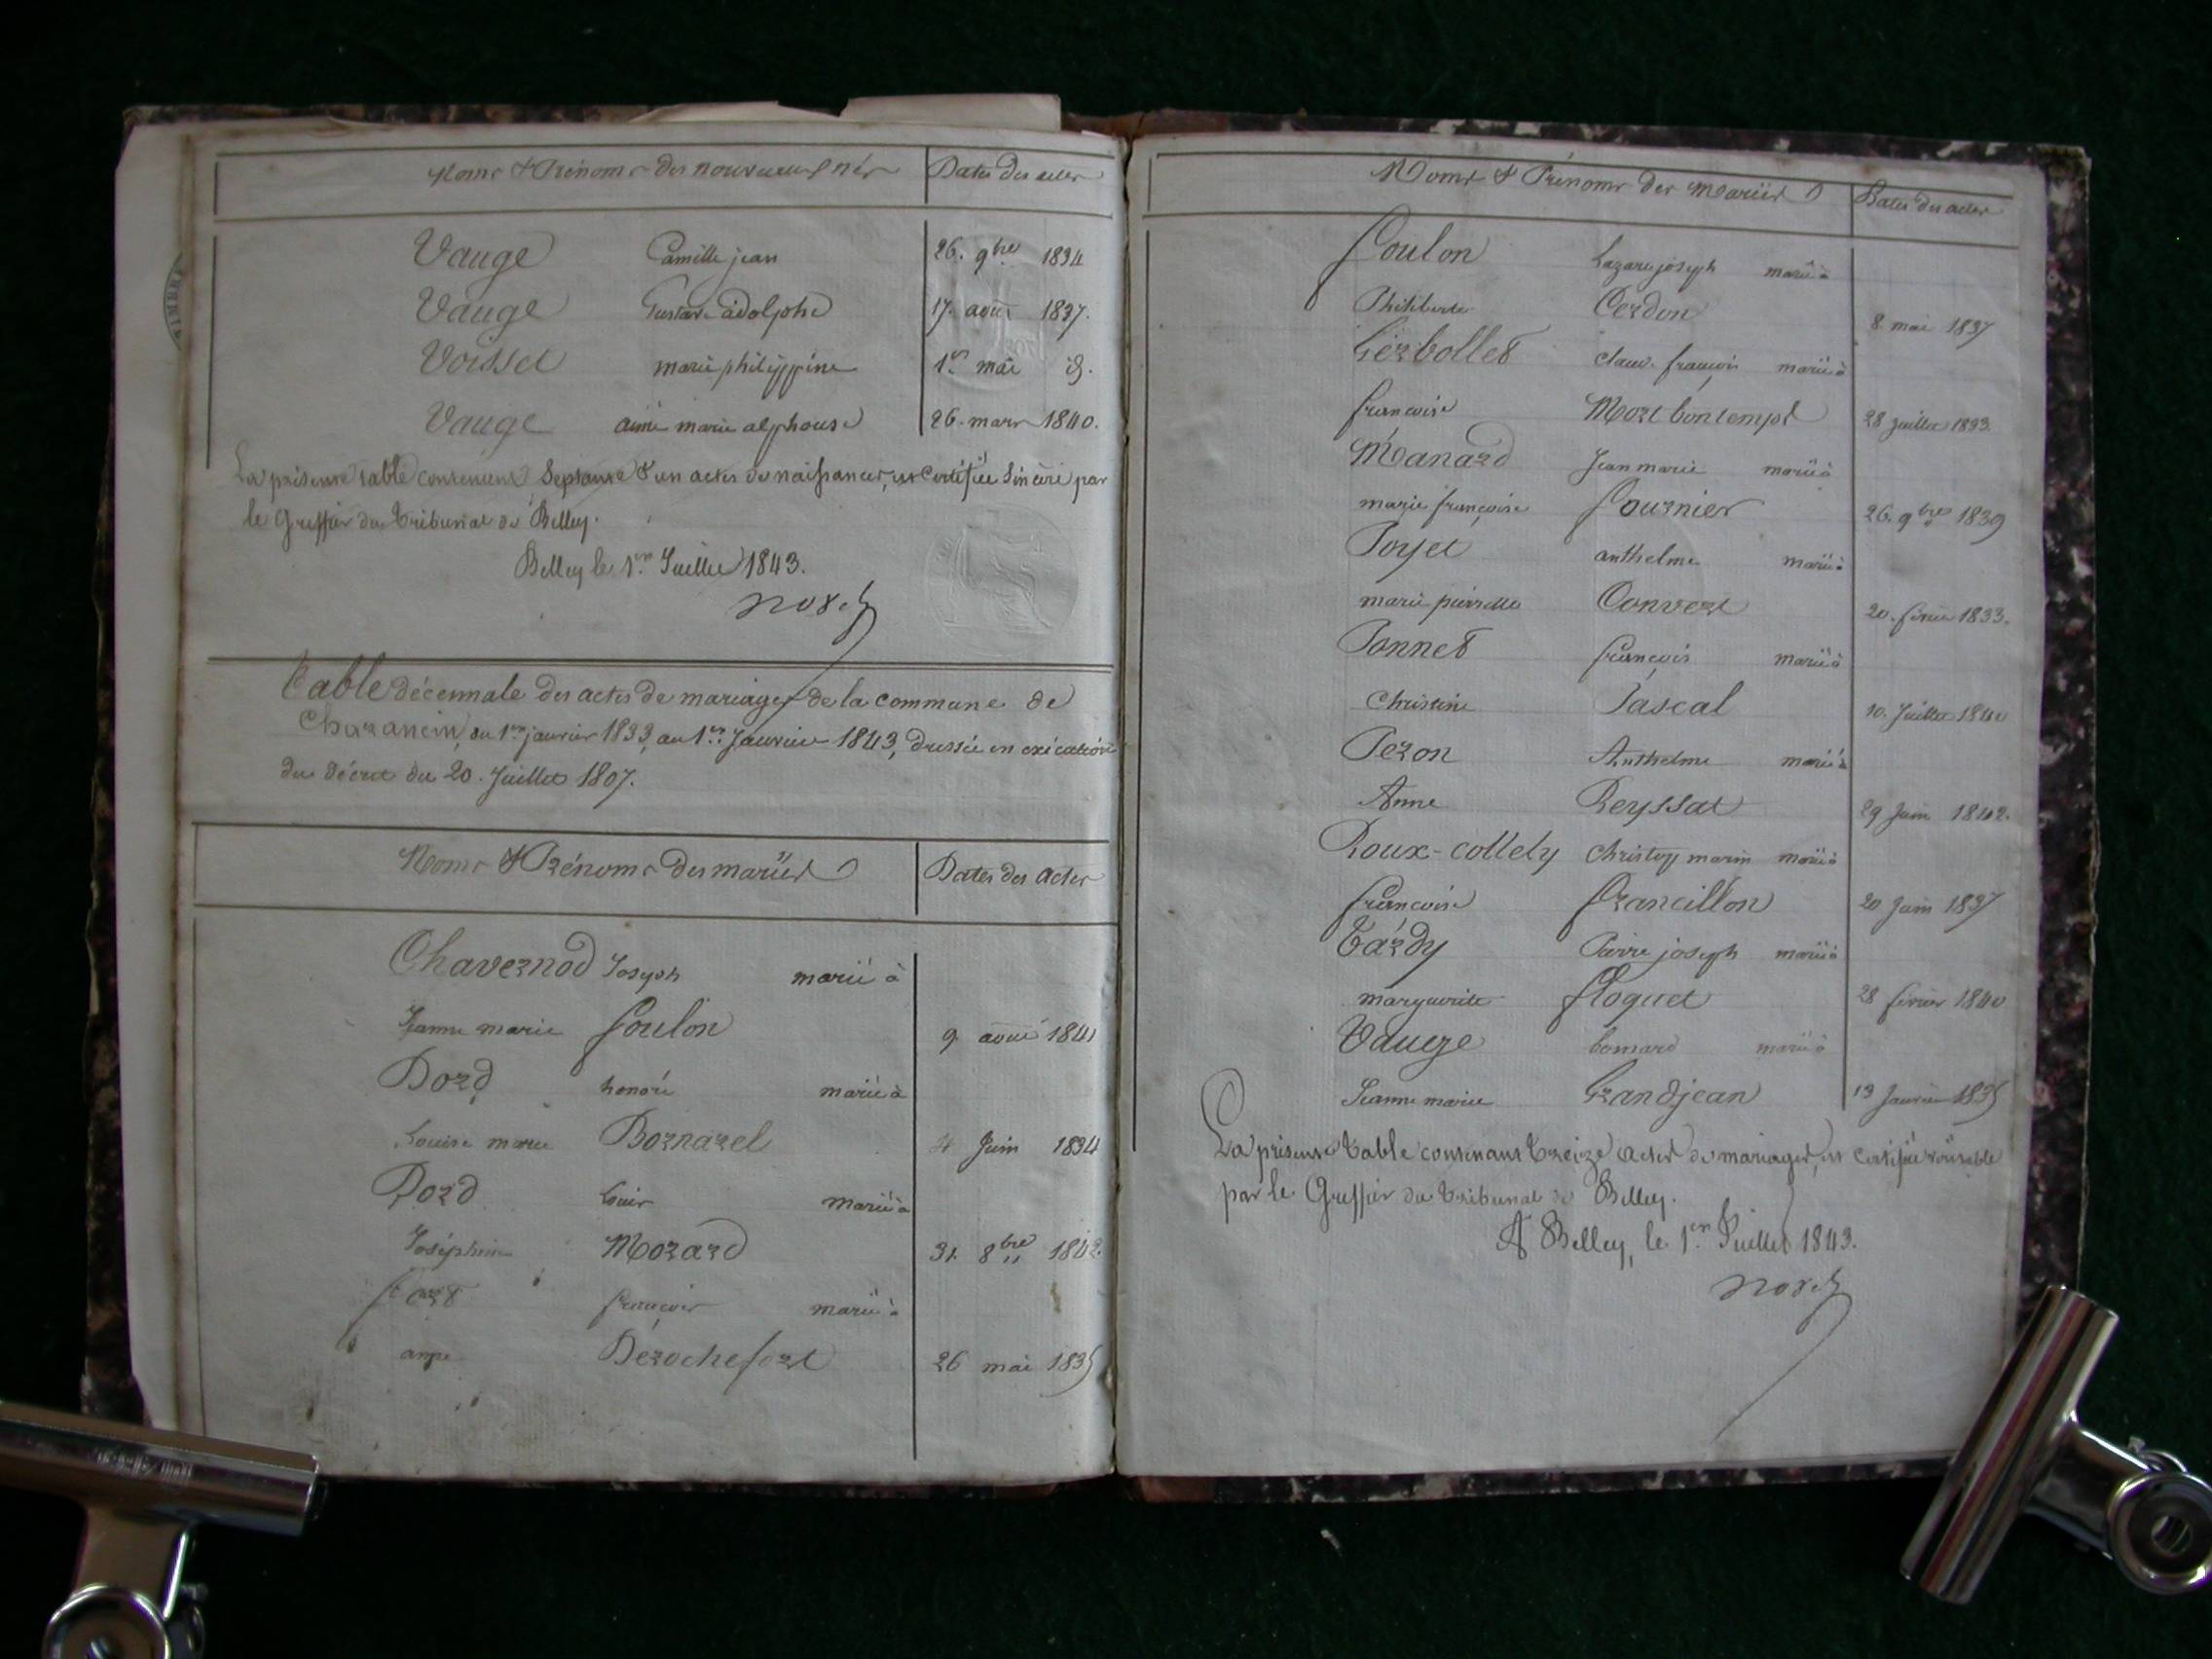 Noms & Prénoms des nouveaux nés Dates des actes
Vauge Camille jean 26. 9bre 1834
Vauge Gustave adolphe 17. août 1837.
Voisset marie philippine 1er mai id.
Vauge aimé marie alphonse 26. mars 1840.
La présente table contenant Septante & un actes de naissances, est certifiée sincère par
le Greffier du Tribunal de Belley.
Belley le 1er Juillet 1843.
Table décennale des actes de mariages de la commune de
Charancin, du 1er janvier 1833, au 1er Janvier 1843, dressée en exécution
du décret du 20. Juillet 1807.
Noms & Prénoms des mariés Dates des Actes
Chavernod Joseph marié à
Jeanne marie Foulon 9 août 1841
Dord honoré marié à
Louise marie Bornarel 4 Juin 1834
Dord Louis marié à
Joséphine Morard 31. 8bre 1842.
françois marié à
anne Dérochefort 26 mai 1835
Noms & Prénoms des mariés Dates des actes
Foulon Lazare joseph marié à
Philiberte Cerdon 8 mai 1837
Gerbollet claude françois marié à
françoise Mort bontemps 28 juillet 1833.
Manard Jean marie marié à
marie françoise Fournier 26. 9bre 1839
Poyet anthelme marié à
marie pierrette Convert 20. février 1833.
Ponnet françois marié à
Christine Pascal 10. Juillet 1840
Peron Anthelme marié à
Anne Reyssat 29 Juin 1842.
Roux-collety christop marin marié à
françoise Francillon 20 Juin 1837
Tardy Pierre joseph marié à
marguerite Floquet 28 février 1840
Vauge marié à
Jeanne marie Grandjean 13 Janvier 1835
La présente table contenant treize actes de mariages, est certifiée véritable
par le Greffier du Tribunal de Belley.
A Belley, le 1er Juillet 1843.